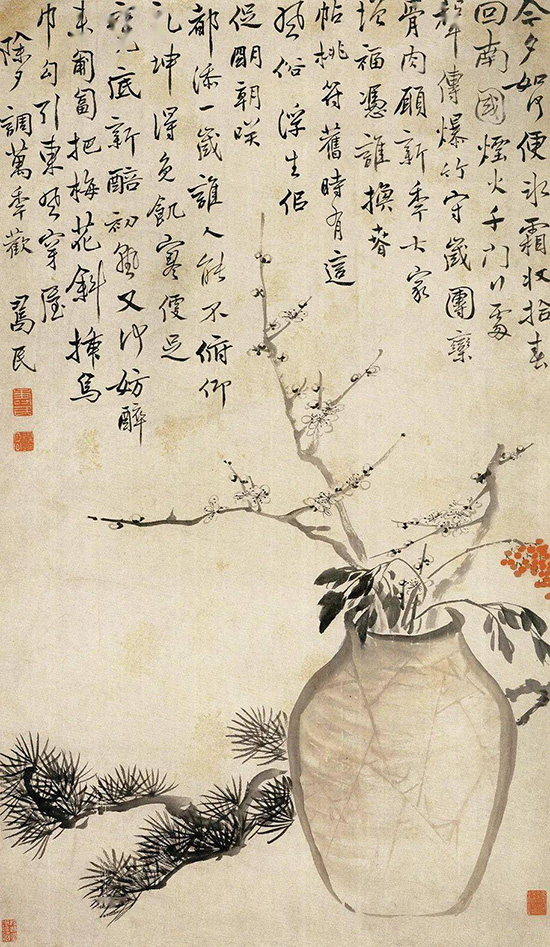 今夕如何便冰霜收拾春
回南國煙火千門處
傳爆竹守歲團圞
骨肉願新年大家
增福憑誰換春
帖桃符舊時有這
風俗浮生侷
促明朝咲
都添一歲誰人能不俯仰
乾坤得免飢寒便足
甕底新醅初熟又何妨醉
來匍匐把梅花斜插烏
巾勾引東風穿屋
除夕調萬年歡 壽民